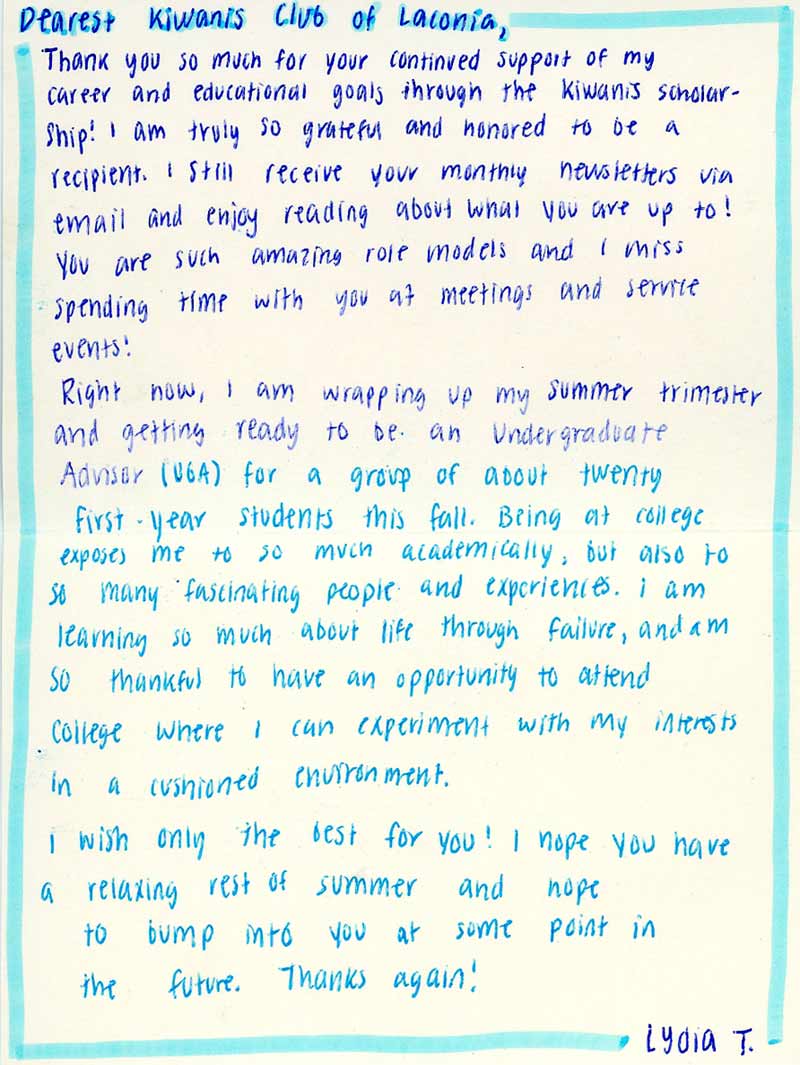 Dearest Kiwanis Club of Laconia,
Thank you so much for your continued support of my
career and educational goals through the Kiwanis scholar-
ship! I am truly so grateful and honored to be a
recipient. I still receive your monthly newsletters via
email and enjoy reading about what you are up to!
You are such amazing role models and I miss
spending time with you at meetings and service
events!
Right now, I am wrapping up my summer trimester
and getting ready to be an Undergraduate
Advisor (UGA) for a group of about twenty
first-year students this fall. Being at college
exposes me to so much academically, but also to
so many fascinating people and experiences. I am
learning so much about life through failure, and am
so thankful to have an opportunity to attend
college where I can experiment with my interests
in a cushioned environment.
I wish only the best for you! I hope you have
a relaxing rest of summer and hope
to bump into you at some point in
the future. Thanks again!
Lydia T.